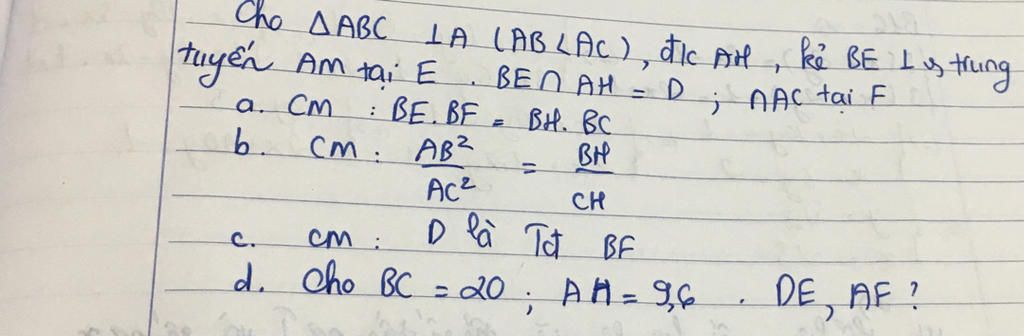 Cho ΔABC ⊥A (AB<AC), đ/c AH, kẻ BE ⊥ vs trung
tuyến AM tại E. BE∩AH = D ; ∩AC tại F
a. CM : BE.BF = BH.BC
b. CM : AB²/AC² = BH/CH
c. CM : D là Tđ BF
d. Cho BC = 20 ; AH = 9,6 . DE, AF ?